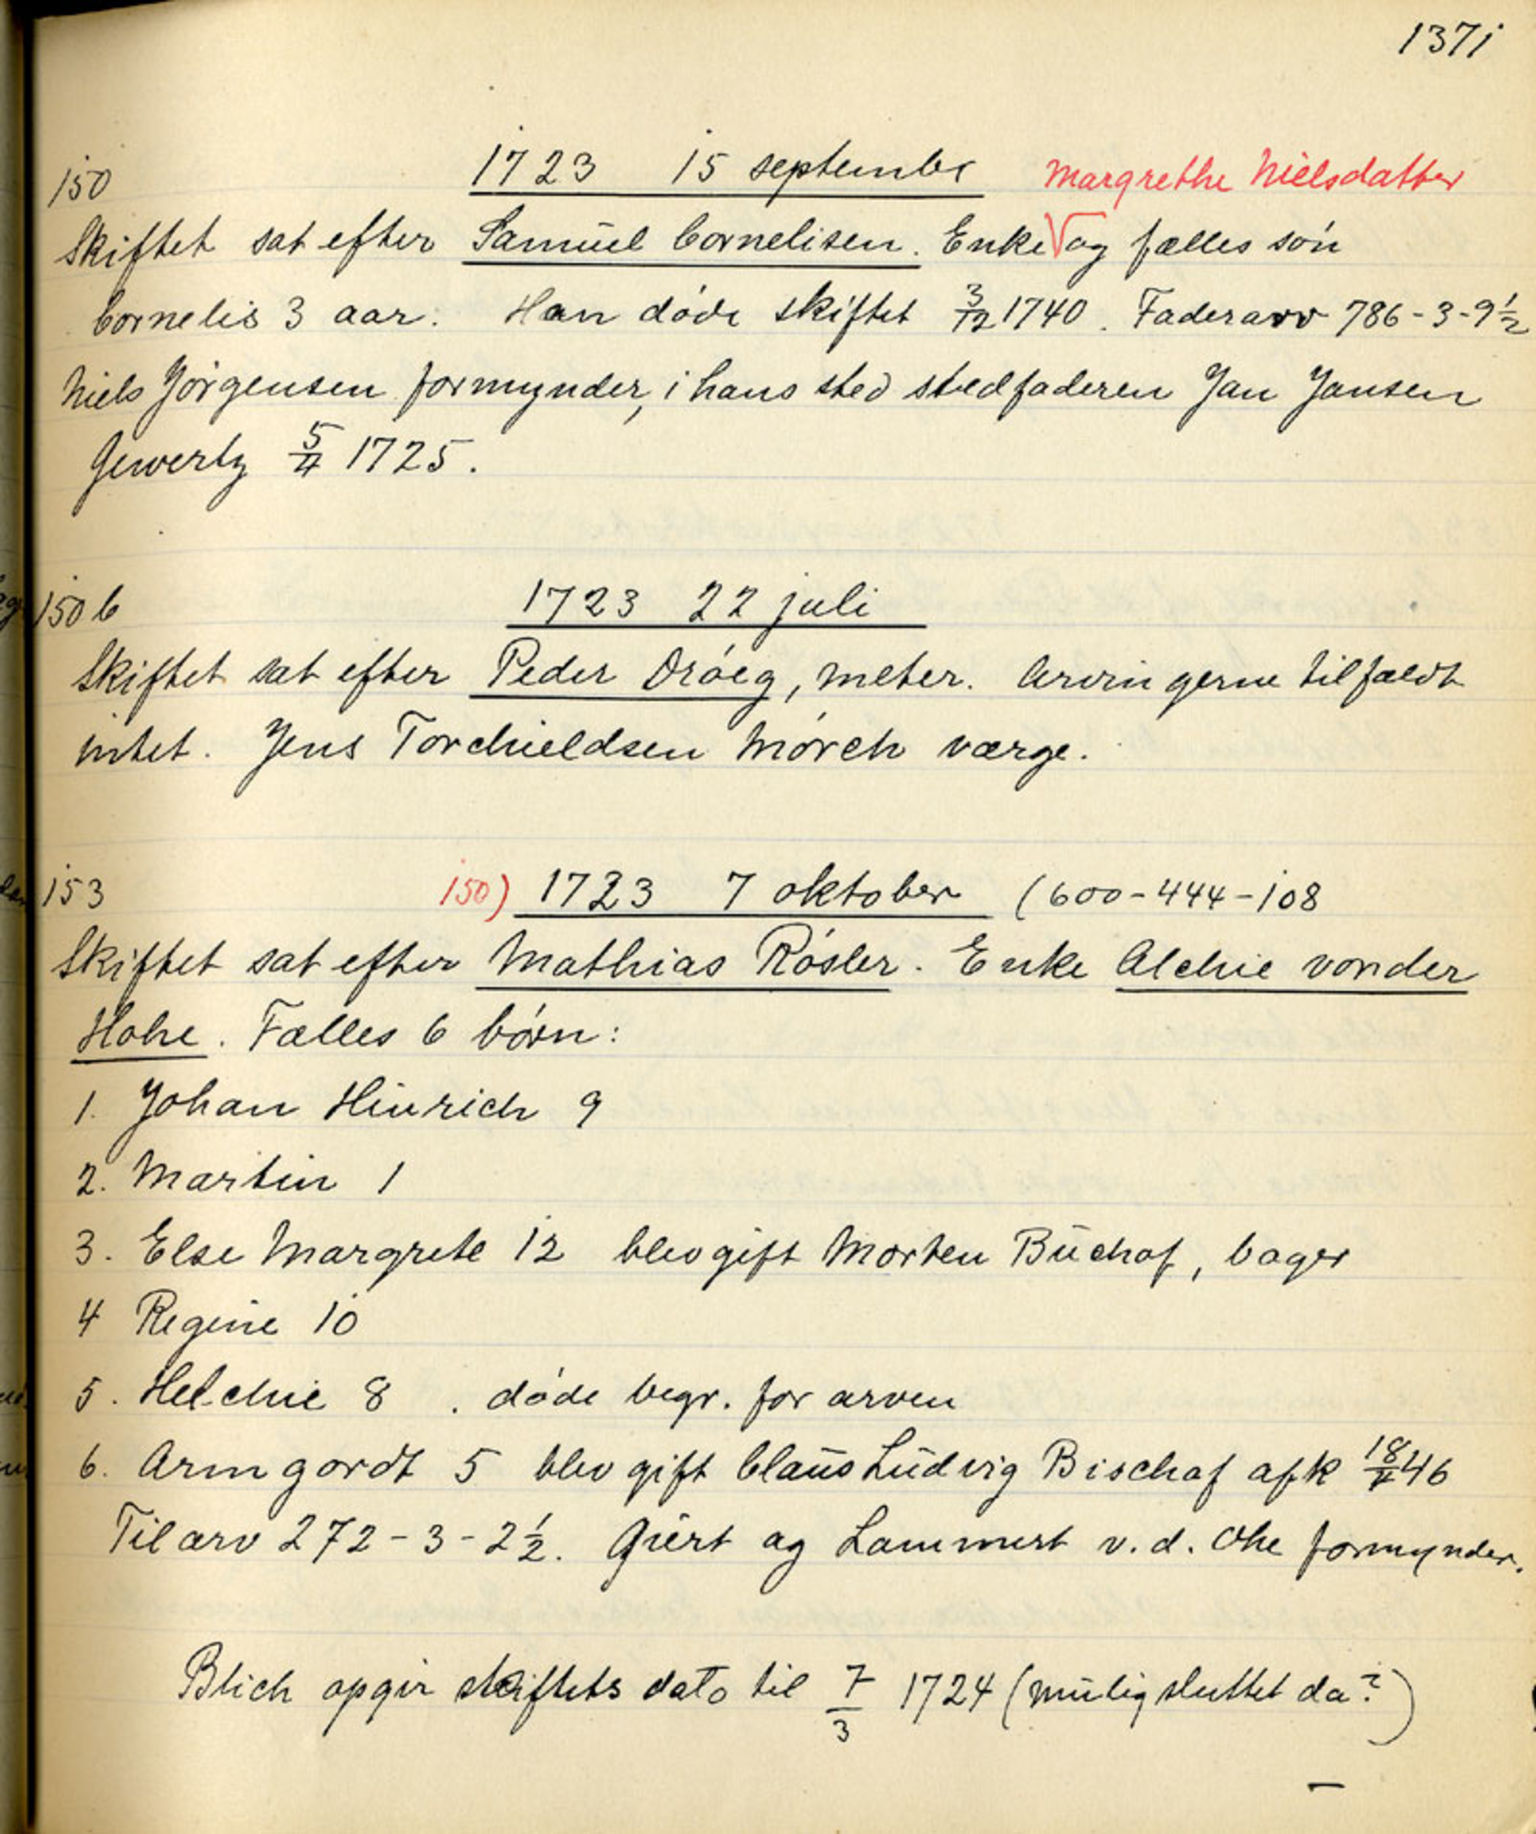 1371
150 1723 15 september Margrethe Nielsdatter
Skiftet sat efter Samuel Cornelisen. Enke √ og fælles søn
Cornelis 3 aar. Han døde skiftet 3/12 1740. Faderarv 786-3-9½
Niels Jørgensen formynder, i hans sted stedfaderen Jan Jansen
Gewertz 5/4 1725.
150b 1723 22 juli
Skiftet sat efter Peder Drøeg, meter. Arvingerne tilfældt
intet. Jens Torchieldsen Mørch værge.
153 150) 1723 7 oktober (600-444-108
Skiftet sat efter Mathias Røsler. Enke Alchie vonder
Hohe. Fælles 6 børn:
1. Johan Hinrich 9
2. Martin 1
3. Else Margrete 12 blev gift Morten Buchof, bager
4 Regine 10
5. Helchie 8 . døde begr. for arven
6. Armgordt 5 blev gift Claus Ludvig Bischof afk 18/4 46
Til arv 272-3-2½. Giert og Lammert v.d. Ohe formynder.
Blich opgir skiftets dato til 7/3 1724 (mulig sluttet da?)